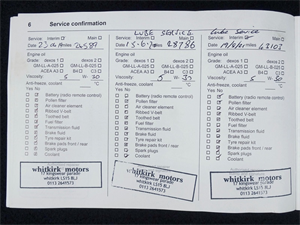 6 Service confirmation
LUBE SERVICE
Lube Service
Service: Interim Main
Service: Interim Main
Service: Interim Main
Date Miles 24587
Date 28786
Date
Engine oil
Engine oil
Engine oil
Grade: dexos 1 dexos 2
Grade: dexos 1 dexos 2
Grade: dexos 1 dexos 2
GM-LL-A-025 GM-LL-B-025
GM-LL-A-025 GM-LL-B-025
GM-LL-A-025 GM-LL-B-025
ACEA A3 B4 C3
ACEA A3 B4 C3
ACEA A3 B4 C3
Viscosity: 5 W 30
Viscosity: 5 W 30
Viscosity: 5 W 30
Battery (radio remote control)
Battery (radio remote control)
Battery (radio remote control)
Pollen filter
Pollen filter
Pollen filter
Air cleaner element
Air cleaner element
Air cleaner element
Ribbed V-belt
Ribbed V-belt
Ribbed V-belt
Toothed belt
Toothed belt
Toothed belt
Fuel filter
Fuel filter
Fuel filter
Transmission fluid
Transmission fluid
Transmission fluid
Brake fluid
Brake fluid
Brake fluid
Tyre repair kit
Tyre repair kit
Tyre repair kit
Brake pads front / rear
Brake pads front / rear
Brake pads front / rear
Spark plugs
Spark plugs
Spark plugs
Coolant
Coolant
Coolant
whitkirk motors
17 kingswear parade
whitkirk LS15 8LJ
0113 2641573
whitkirk motors
17 kingswear parade
whitkirk LS15 8LJ
0113 2641573
whitkirk motors
17 kingswear parade
whitkirk LS15 8LJ
0113 2641573